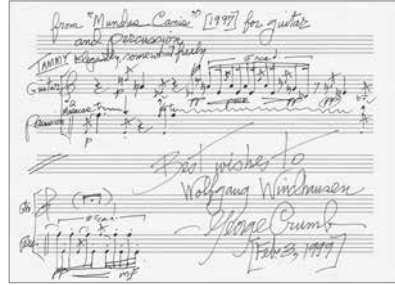 from "Mundus Canis" [1997] for guitar
and percussion
TAMMY Elegantly, somewhat freely
Guitar
p
pp
Maracas
Percussion
p
Best wishes to
Wolfgang Windhausen
George Crumb
[Feb. 3, 1999]
pp
mf